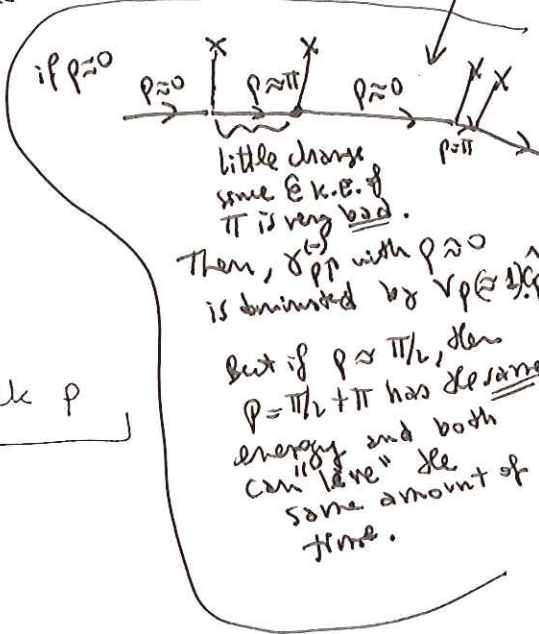 if p≈0
p≈0
p≈π
p≈0
p≈π
little change
since k.e. of
π is very bad.
Then, γ_{p↑}^{(-)} with p≈0
is dominated by V_p(≈1)
But if p≈π/2, then
p=π/2+π has the same
energy and both
can "live" the
same amount of
time.
k p